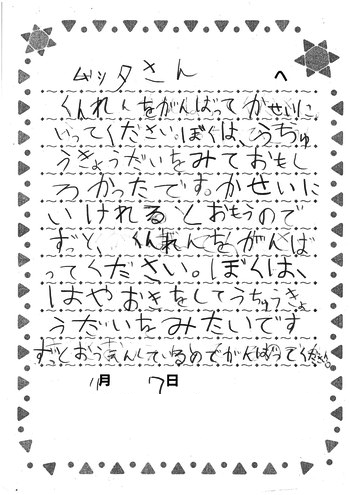 ムッタさん へ
くんれんをがんばってかせいに
いってください。ぼくは、うちゅ
うきょうだいをみておもし
ろかったです。かせいに
いけれるとおもうので
ずっと、くんれんをがんば
ってください。ぼくは、
はやおきをしてうちゅうきょ
うだいをみたいです
ずっとおうえんしているのでがんばってください。
11月 7日